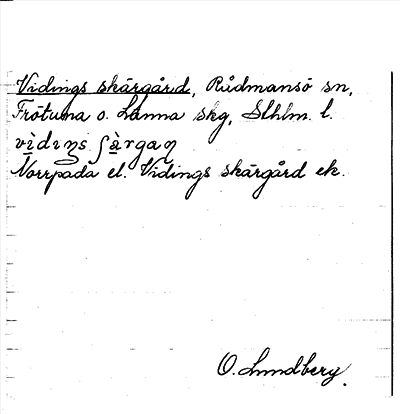 Vidings skärgård, Rådmansö sn,
Frötuna o. Länna skg, Sthlm. l.
vìdıŋs ʃàrgaŋ
Norrpada el. Vidings skärgård ek.
O. Lundberg.